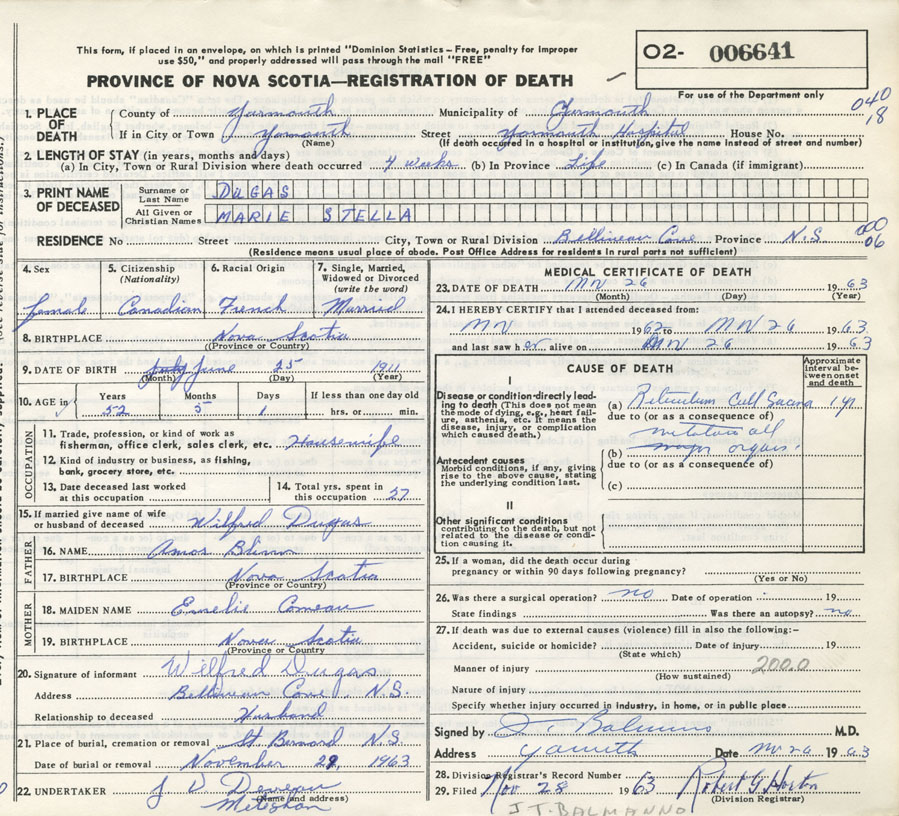 This form, if placed in an envelope, on which is printed "Dominion Statistics – Free, penalty for improper
use $50," and properly addressed will pass through the mail "FREE"
PROVINCE OF NOVA SCOTIA—REGISTRATION OF DEATH
O2- 006641
For use of the Department only
040
18
1. PLACE OF DEATH
County of Yarmouth Municipality of Yarmouth
If in City or Town Yarmouth Street Yarmouth Hospital House No.
(Name) (If death occurred in a hospital or institution, give the name instead of street and number)
2. LENGTH OF STAY (in years, months and days)
(a) In City, Town or Rural Division where death occurred 4 weeks (b) In Province Life (c) In Canada (if immigrant)
3. PRINT NAME OF DECEASED
Surname or Last Name DUGAS
All Given or Christian Names MARIE STELLA
000
06
RESIDENCE No Street City, Town or Rural Division Bellineau Cove Province N.S.
(Residence means usual place of abode. Post Office Address for residents in rural parts not sufficient)
4. Sex female
5. Citizenship (Nationality) Canadian
6. Racial Origin French
7. Single, Married, Widowed or Divorced (write the word) Married
8. BIRTHPLACE Nova Scotia
(Province or Country)
9. DATE OF BIRTH July June 25 1911
(Month) (Day) (Year)
10. AGE in Years 52 Months 5 Days 1 If less than one day old hrs. or min.
OCCUPATION
11. Trade, profession, or kind of work as
fisherman, office clerk, sales clerk, etc. Housewife
12. Kind of industry or business, as fishing,
bank, grocery store, etc.
13. Date deceased last worked
at this occupation
14. Total yrs. spent in
this occupation 27
15. If married give name of wife
or husband of deceased Wilfred Dugas
FATHER
16. NAME Amos Blinn
17. BIRTHPLACE Nova Scotia
(Province or Country)
MOTHER
18. MAIDEN NAME Emelie Comeau
19. BIRTHPLACE Nova Scotia
(Province or Country)
20. Signature of informant Wilfred Dugas
Address Bellineau Cove, N.S.
Relationship to deceased Husband
21. Place of burial, cremation or removal St Bernard N.S.
Date of burial or removal November 29, 1963
22. UNDERTAKER J D Deveau
(Name and address)
Meteghan
MEDICAL CERTIFICATE OF DEATH
23. DATE OF DEATH Nov 26 1963
(Month) (Day) (Year)
24. I HEREBY CERTIFY that I attended deceased from:
Nov 1962 to Nov 26 1963
and last saw her alive on Nov 26 1963
CAUSE OF DEATH
Approximate interval between onset and death
I
Disease or condition directly leading to death (This does not mean the mode of dying, e.g., heart failure, asthenia, etc. It means the disease, injury, or complication which caused death.)
(a) Reticulum Cell Sarcoma 1 yr
due to (or as a consequence of)
metastases all
(b) major organs
due to (or as a consequence of)
(c)
Antecedent causes
Morbid conditions, if any, giving rise to the above cause, stating the underlying condition last.
II
Other significant conditions
contributing to the death, but not related to the disease or condition causing it.
25. If a woman, did the death occur during
pregnancy or within 90 days following pregnancy?
(Yes or No)
26. Was there a surgical operation? no Date of operation 19
State findings Was there an autopsy? no
27. If death was due to external causes (violence) fill in also the following:–
Accident, suicide or homicide? Date of injury 19
(State which)
Manner of injury 200.0
(How sustained)
Nature of injury
Specify whether injury occurred in industry, in home, or in public place
Signed by J. T. Balmanno M.D.
Address Yarmouth Date Nov 26 1963
28. Division Registrar's Record Number
29. Filed Nov 28 1963 Robert G Horton
(Division Registrar)
J.T. BALMANNO